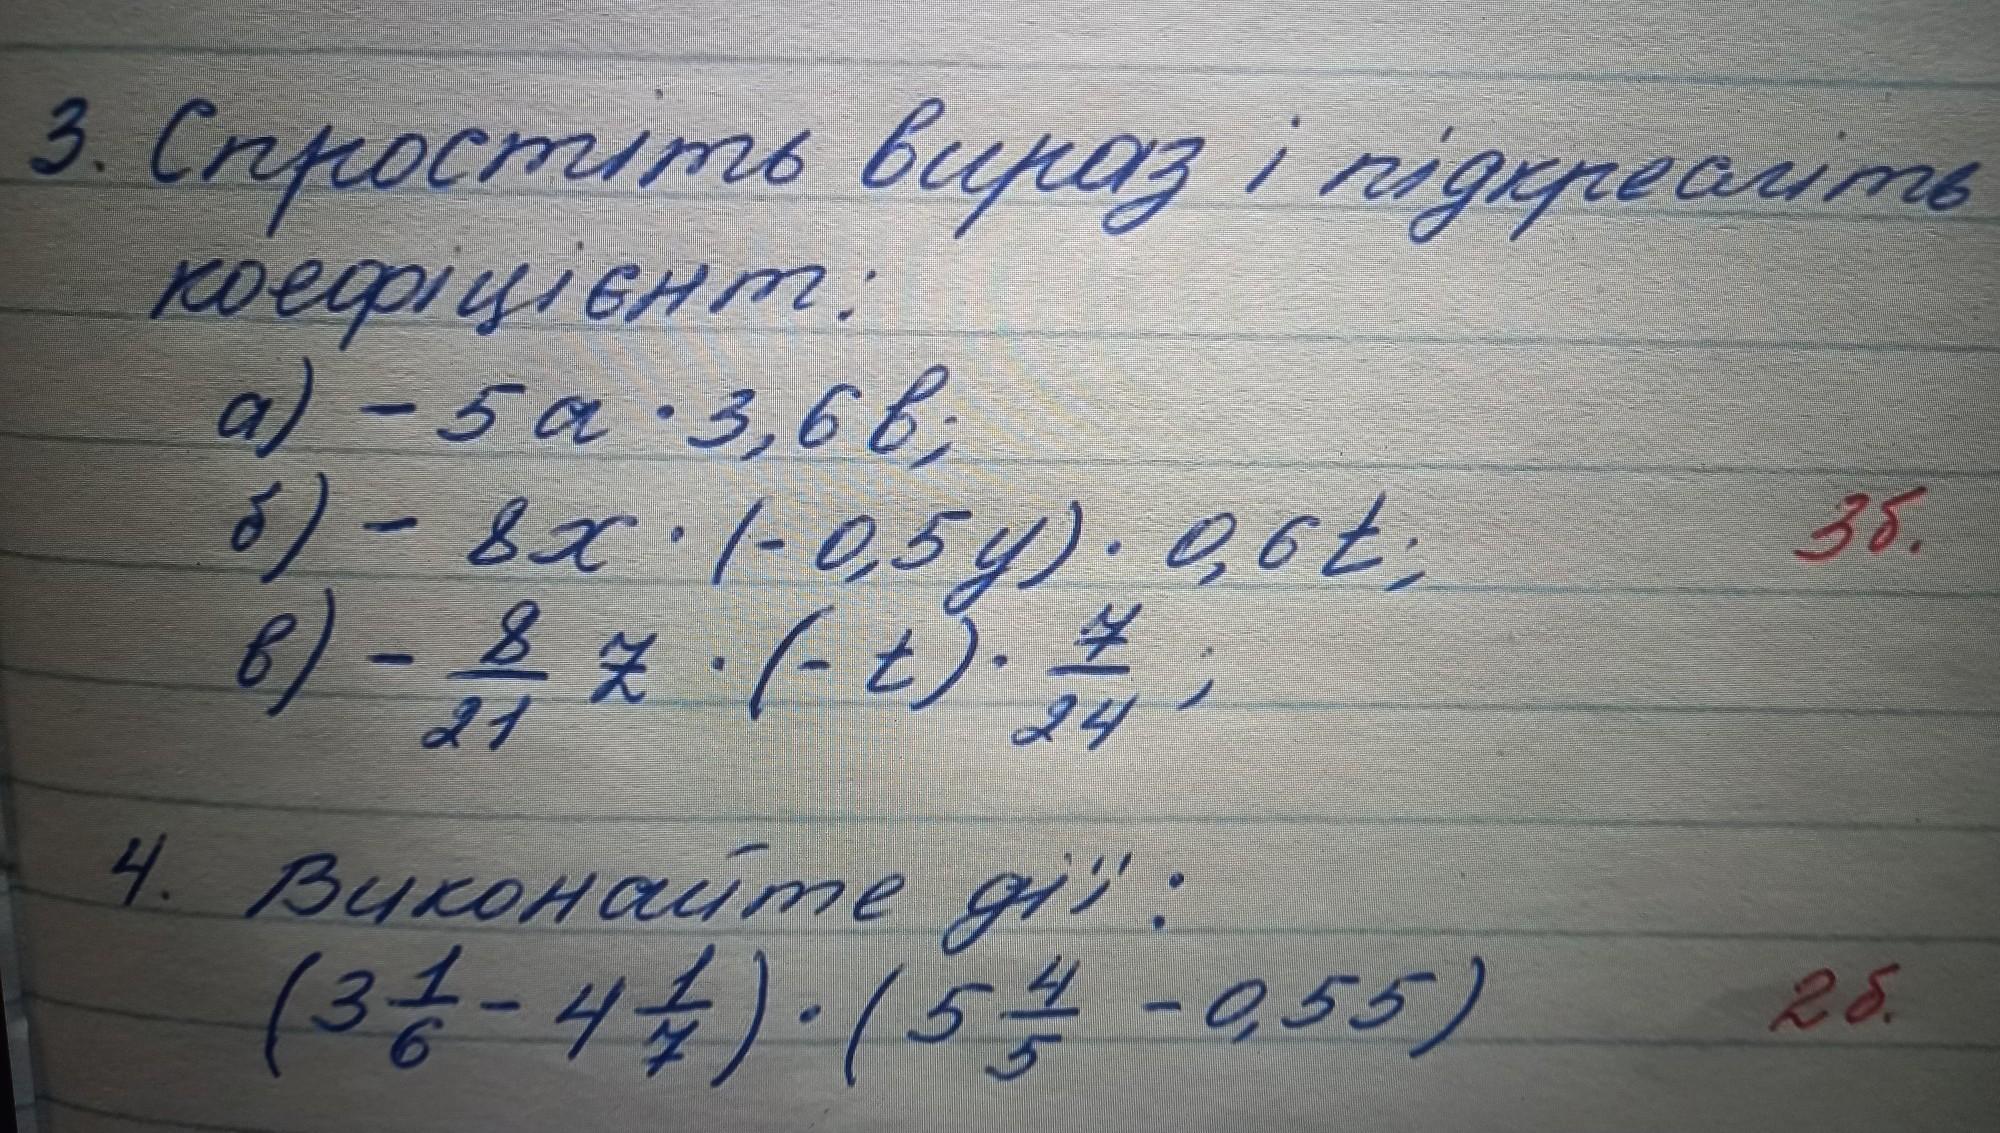 3. Спростіть вираз і підкресліть
коефіцієнт:
а) - 5а · 3,6в;
б) - 8x · (-0,5y) · 0,6t; 3б.
в) - 8/21 z · (- t) · 7/24;
4. Виконайте дії:
(3 1/6 - 4 1/7) · (5 4/5 - 0,55) 2б.